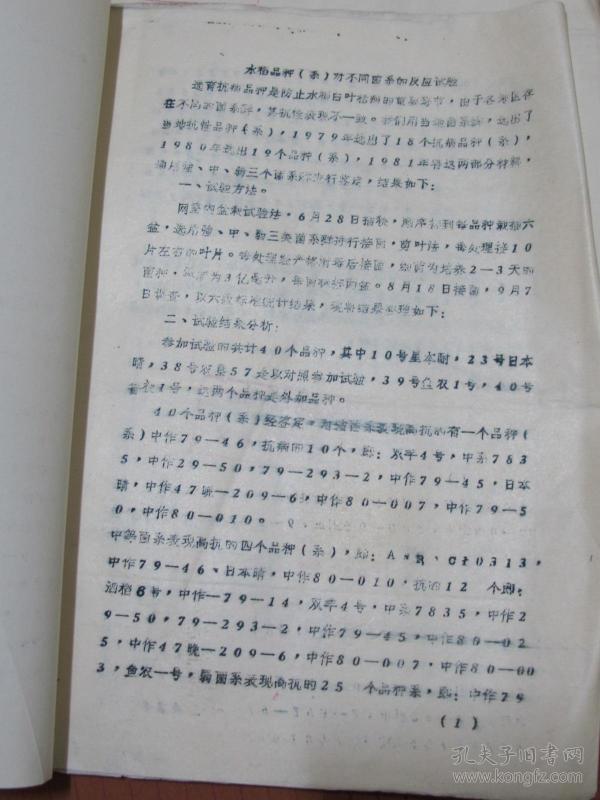 水稻品种(系)对不同菌系的反应试验
选育抗病品种是防止水稻白叶枯病的重要环节,由于各稻区存
在不同的菌系群,其抗性表现不一致。我们用当地菌系群,选出了
当地抗性品种(系),1979年选出了18个抗病品种(系),
1980年选出19个品种(系),1981年将这两部分材料,
用强、中、弱三个菌系进行鉴定,结果如下:
一、试验方法。
网室内盆栽试验法,6月28日插秧,顺序排列每品种栽插六
盆,选用强、中、弱三类菌系群进行接菌,剪叶法,每处理接10
片左右的叶片。每处理经严格消毒后接菌,细菌为培养2—3天的
菌种,浓度为3亿毫升,8月18日接菌,9月7
日调查,以六级标准统计结果,现将结果整理如下:
二、试验结果分析:
参加试验的共计40个品种,其中10号星本耐,23号日本
晴,38号农垦57是以对照参加试验,39号鱼农1号,40号
农1号,这两个品种是外加品种。
40个品种(系)经鉴定,对强菌系表现高抗的有一个品种(
系)中作79—46,抗病的10个,即:双平4号,中系783
5,中作29—50,79—293—2,中作79—45,日本
晴,中作47晚—209—6,中作80—007,中作79—5
0,中作80—010。
中等菌系表现高抗的四个品种(系),即:ASR、C10313,
中作79—46、日本晴,中作80—010,抗的12 个即:
泗稻8号,中作—79—14,双平4号,中系7835,中作2
9—50,79—293—2,中作79—45,中作80—02
5,中作47晚—209—6,中作80—007,中作80—00
3,鱼农一号,弱菌系表现高抗的25 个品种系,即:中作79
(1)
孔夫子旧书网
www.kongfz.com